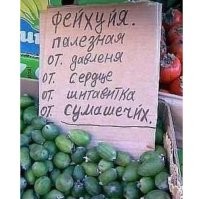 Фейхуйя.
полезная
от давленя
от сердце
от щитавитка
от сумашечйх.